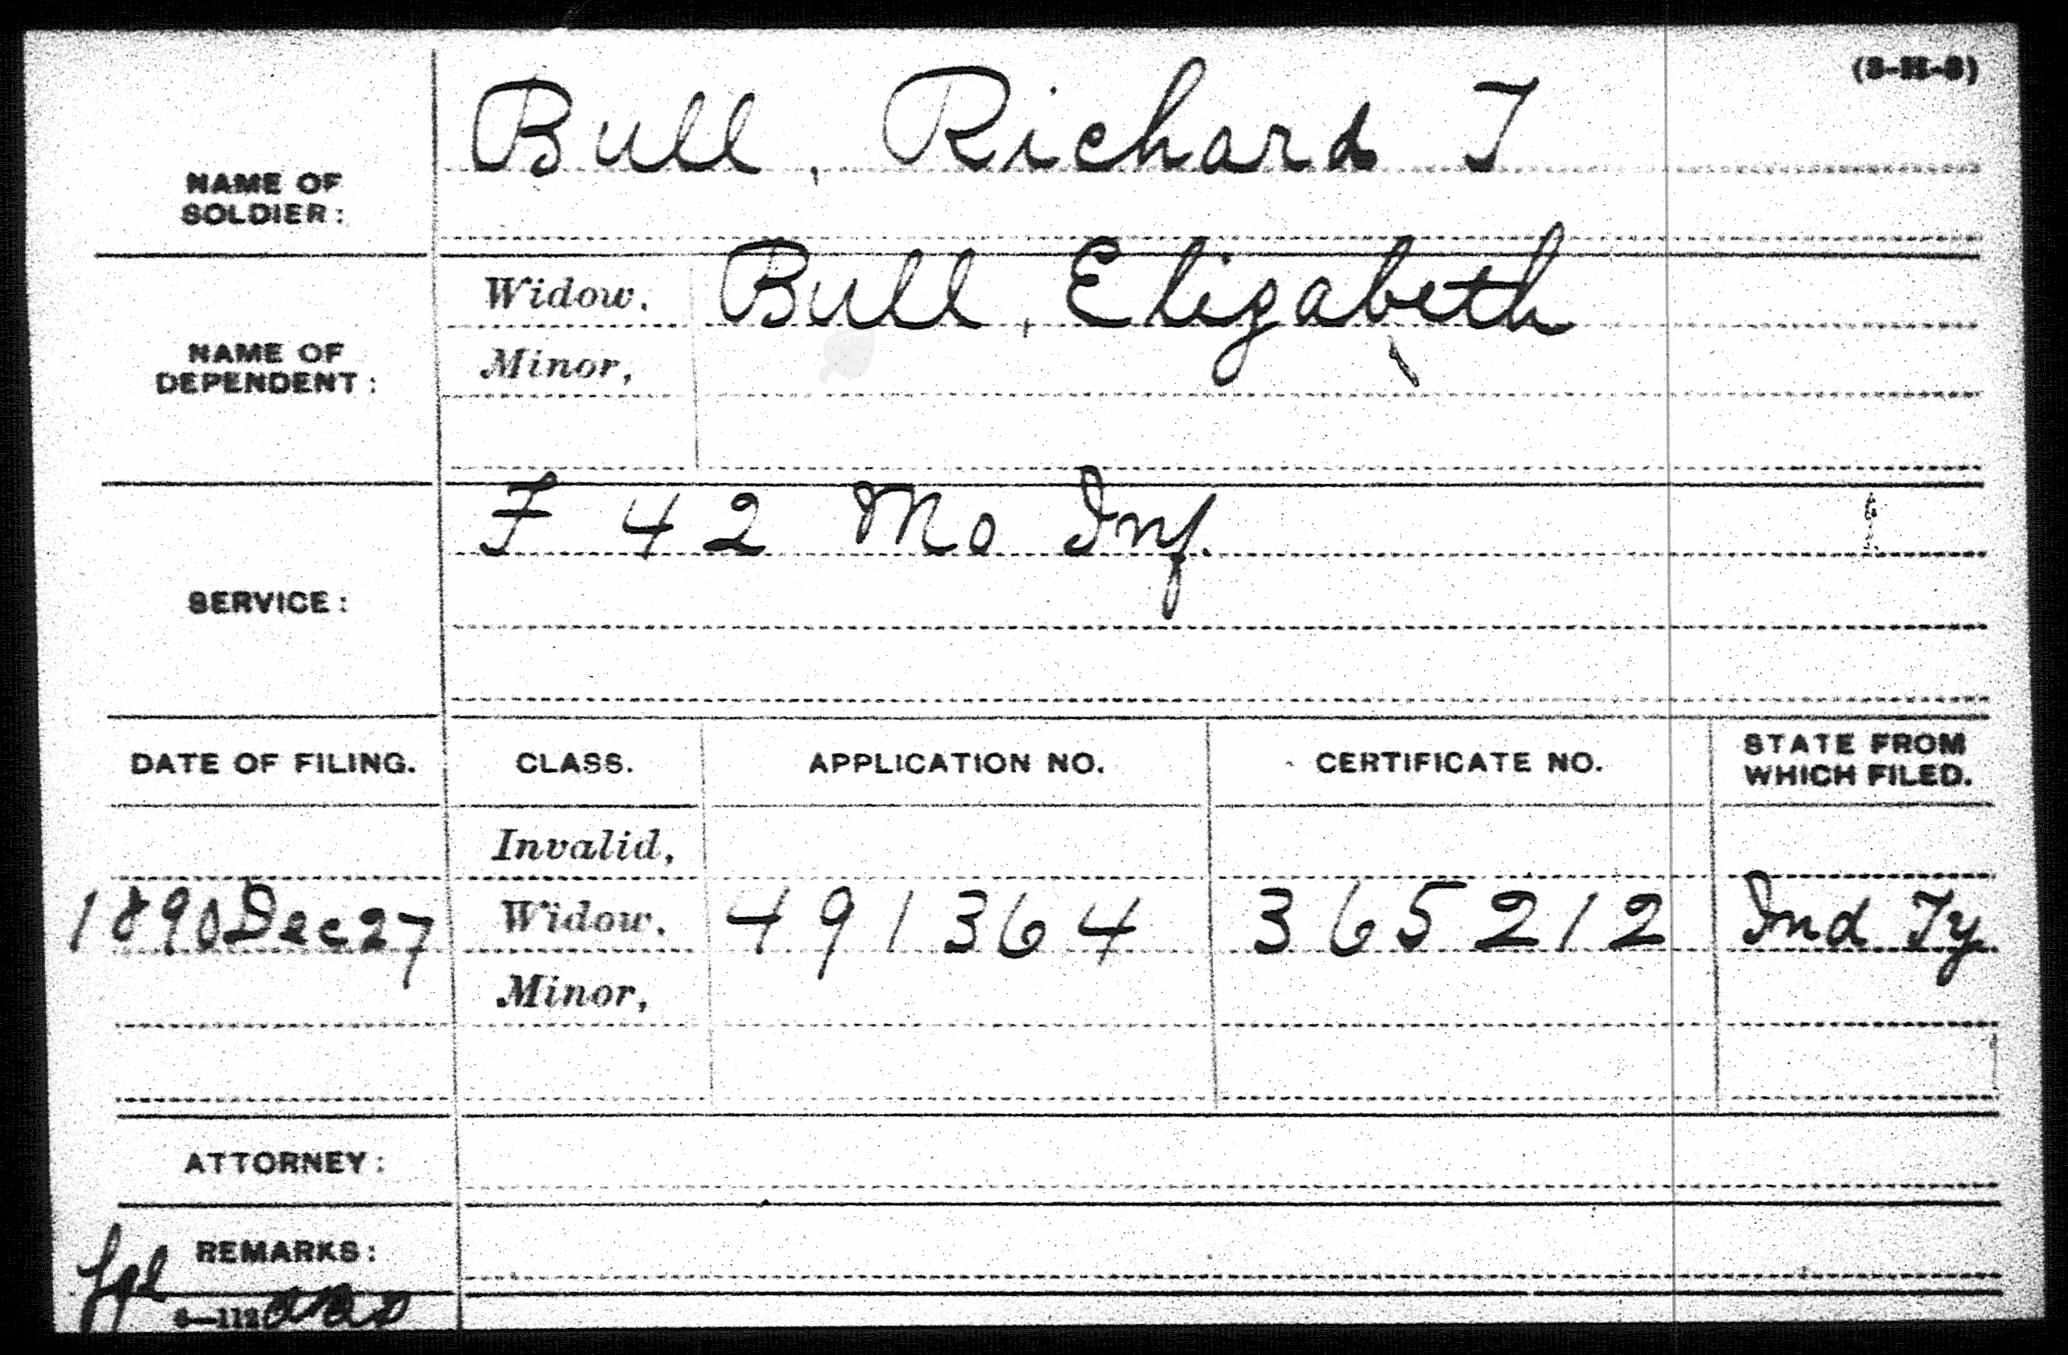 (3-H-3)
Bull, Richard T
NAME OF
SOLDIER:
Widow. Bull, Elizabeth
Minor,
NAME OF
DEPENDENT:
F 42 Mo Inf.
SERVICE:
DATE OF FILING. CLASS. APPLICATION NO. CERTIFICATE NO. STATE FROM WHICH FILED.
Invalid,
1890 Dec 27 Widow. 491364 365212 Ind Ty
Minor,
ATTORNEY:
REMARKS:
3—112